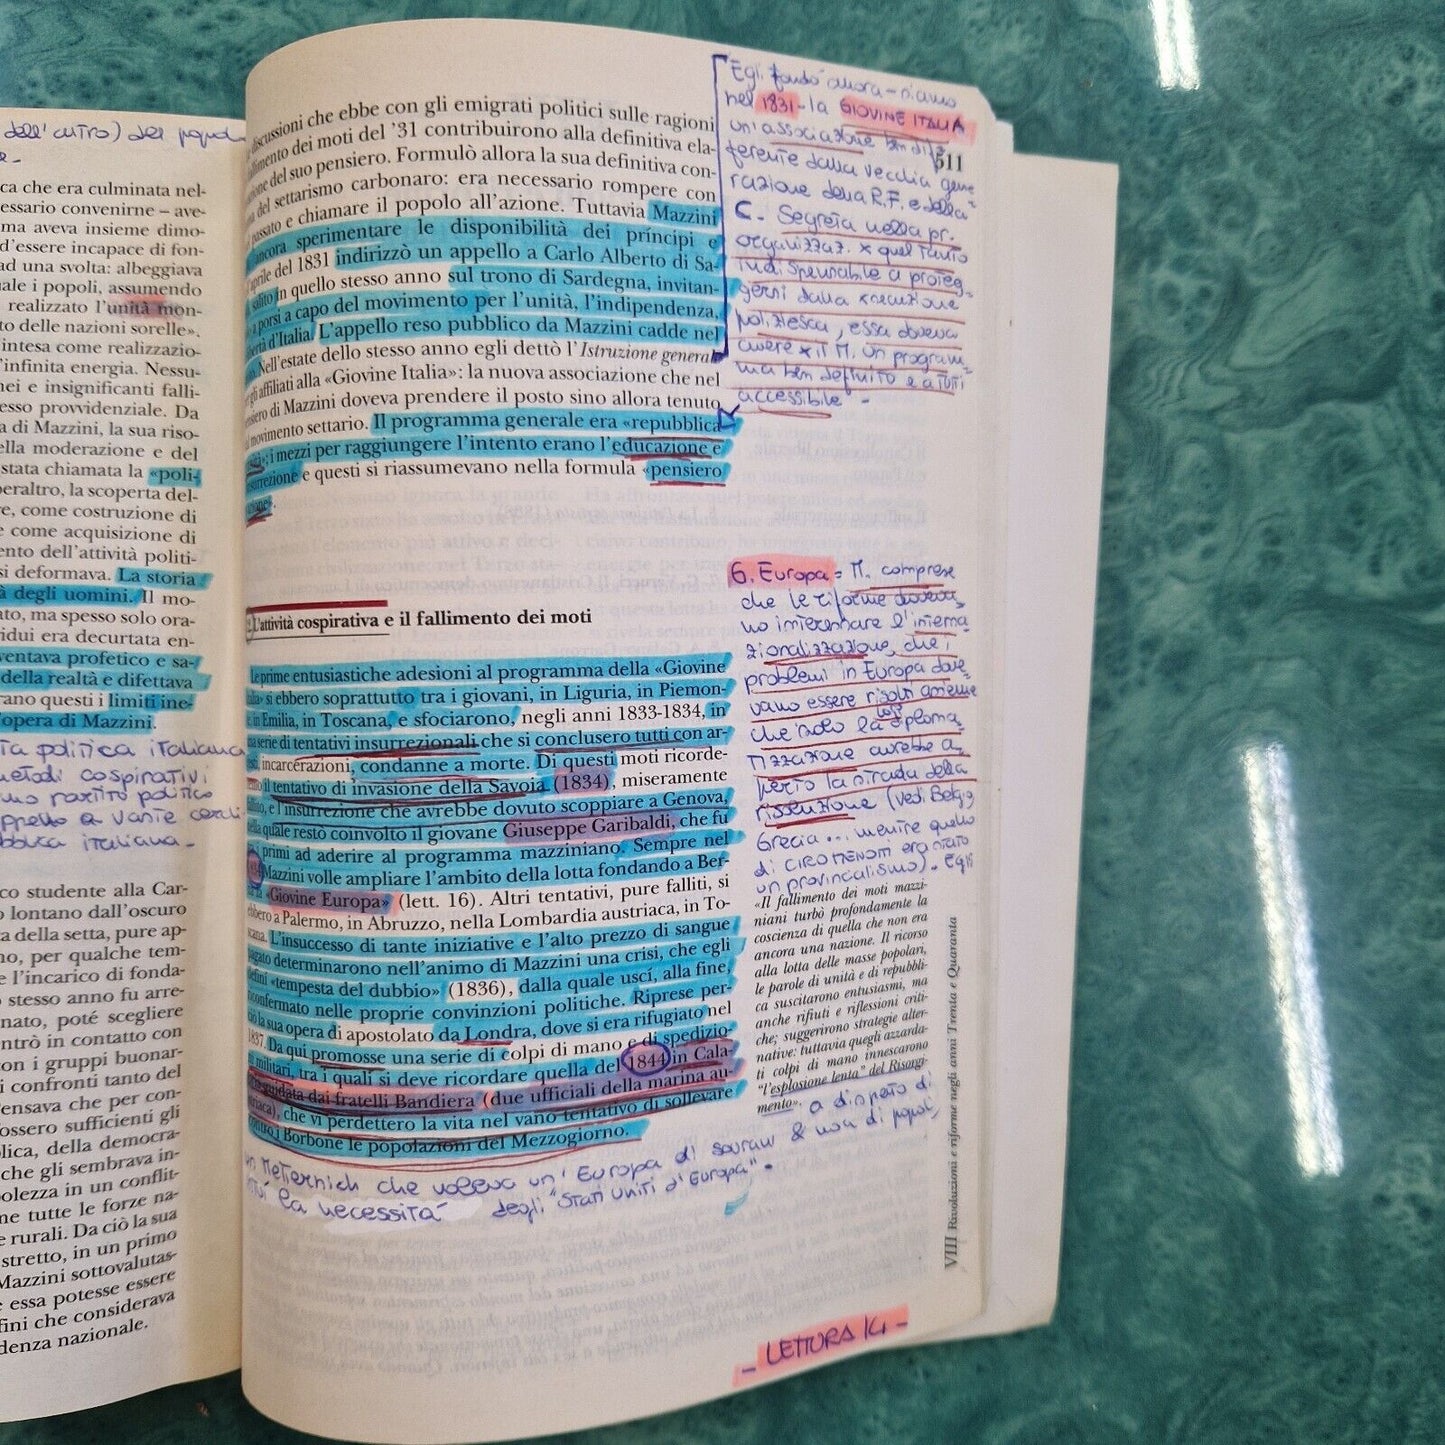 dell'altro) del popolo
ca che era culminata nel-
cessario convenirne – ave-
ma aveva insieme dimo-
d'essere incapace di fon-
ad una svolta: albeggiava
uale i popoli, assumendo
realizzato l'unità mon-
to delle nazioni sorelle».
intesa come realizzazio-
l'infinita energia. Nessu-
nei e insignificanti falli-
esso provvidenziale. Da
a di Mazzini, la sua riso-
ella moderazione e del
stata chiamata la «poli-
peraltro, la scoperta del-
re, come costruzione di
e come acquisizione di
ento dell'attività politi-
si deformava. La storia
à degli uomini. Il mo-
ato, ma spesso solo ora-
vidui era decurtata en-
ventava profetico e sa-
della realtà e difettava
rano questi i limiti ine-
l'opera di Mazzini.
ta politica italiana
metodi cospirativi
mo partito politico
appello a varie
bblica italiana -
co studente alla Car-
o lontano dall'oscuro
ta della setta, pure ap-
no, per qualche tem-
e l'incarico di fonda-
stesso anno fu arre-
nato, poté scegliere
entrò in contatto con
con i gruppi buonar-
i confronti tanto del
ensava che per con-
fossero sufficienti gli
lica, della democra-
che gli sembrava in-
olezza in un conflit-
ne tutte le forze na-
e rurali. Da ciò la sua
stretto, in un primo
Mazzini sottovalutas-
e essa potesse essere
fini che considerava
denza nazionale.
discussioni che ebbe con gli emigrati politici sulle ragioni
fallimento dei moti del '31 contribuirono alla definitiva ela-
zione del suo pensiero. Formulò allora la sua definitiva con-
del settarismo carbonaro: era necessario rompere con
passato e chiamare il popolo all'azione. Tuttavia Mazzini
ancora sperimentare le disponibilità dei príncipi e
aprile del 1831 indirizzò un appello a Carlo Alberto di Sa-
salito in quello stesso anno sul trono di Sardegna, invitan-
a porsi a capo del movimento per l'unità, l'indipendenza,
libertà d'Italia. L'appello reso pubblico da Mazzini cadde nel
Nell'estate dello stesso anno egli dettò l'Istruzione generale
gli affiliati alla «Giovine Italia»: la nuova associazione che nel
pensiero di Mazzini doveva prendere il posto sino allora tenuto
movimento settario. Il programma generale era «repubblica
; i mezzi per raggiungere l'intento erano l'educazione e
insurrezione e questi si riassumevano nella formula «pensiero
azione».
L'attività cospirativa e il fallimento dei moti
Le prime entusiastiche adesioni al programma della «Giovine
Italia» si ebbero soprattutto tra i giovani, in Liguria, in Piemon-
te, in Emilia, in Toscana, e sfociarono, negli anni 1833-1834, in
una serie di tentativi insurrezionali che si conclusero tutti con ar-
resti, incarcerazioni, condanne a morte. Di questi moti ricorde-
remo il tentativo di invasione della Savoia (1834), miseramente
fallito, e l'insurrezione che avrebbe dovuto scoppiare a Genova,
nella quale restò coinvolto il giovane Giuseppe Garibaldi, che fu
primi ad aderire al programma mazziniano. Sempre nel
Mazzini volle ampliare l'ambito della lotta fondando a Ber-
«Giovine Europa» (lett. 16). Altri tentativi, pure falliti, si
ebbero a Palermo, in Abruzzo, nella Lombardia austriaca, in To-
scana. L'insuccesso di tante iniziative e l'alto prezzo di sangue
pagato determinarono nell'animo di Mazzini una crisi, che egli
definì «tempesta del dubbio» (1836), dalla quale uscí, alla fine,
riconfermato nelle proprie convinzioni politiche. Riprese per-
ciò la sua opera di apostolato da Londra, dove si era rifugiato nel
1837. Da qui promosse una serie di colpi di mano e di spedizio-
ni militari, tra i quali si deve ricordare quella del 1844 in Cala-
guidata dai fratelli Bandiera (due ufficiali della marina au-
striaca), che vi perdettero la vita nel vano tentativo di sollevare
contro i Borbone le popolazioni del Mezzogiorno.
Meternich che voleva un'Europa di sovrani & non di popoli
la necessità degli "Stati Uniti d'Europa".
Egli fondò allora
nel 1831 - la GIOVINE ITALIA
un'associazione ben dif
511
ferente dalla vecchia gene
razione della R.F. e della
C. Segreta nella pr.
organizzaz. x quel tanto
indispensabile a proteg-
gersi dalla
poliziesca, essa doveva
avere x il M. un program-
ma ben definito e a tutti
accessibile -
6. Europa = M. comprese
che le riforme doveva-
no interessare l'interna-
zionalizzazione, che i
problemi in Europa dove-
vano essere risolti
che solo la diploma-
tizzazione avrebbe a-
perto la strada della
(vedi Belgio,
Grecia... mentre quello
di CIRO MENOTTI era stato
un provincialismo). Egli
«Il fallimento dei moti mazzi-
niani turbò profondamente la
coscienza di quella che non era
ancora una nazione. Il ricorso
alla lotta delle masse popolari,
le parole di unità e di repubbli-
ca suscitarono entusiasmi, ma
anche rifiuti e riflessioni criti-
che; suggerirono strategie alter-
native: tuttavia quegli azzarda-
ti colpi di mano innescarono
“l'esplosione lenta” del Risorgi-
mento».
a dispetto di
VIII Rivoluzioni e riforme negli anni Trenta e Quaranta
- LETTURA 14 -